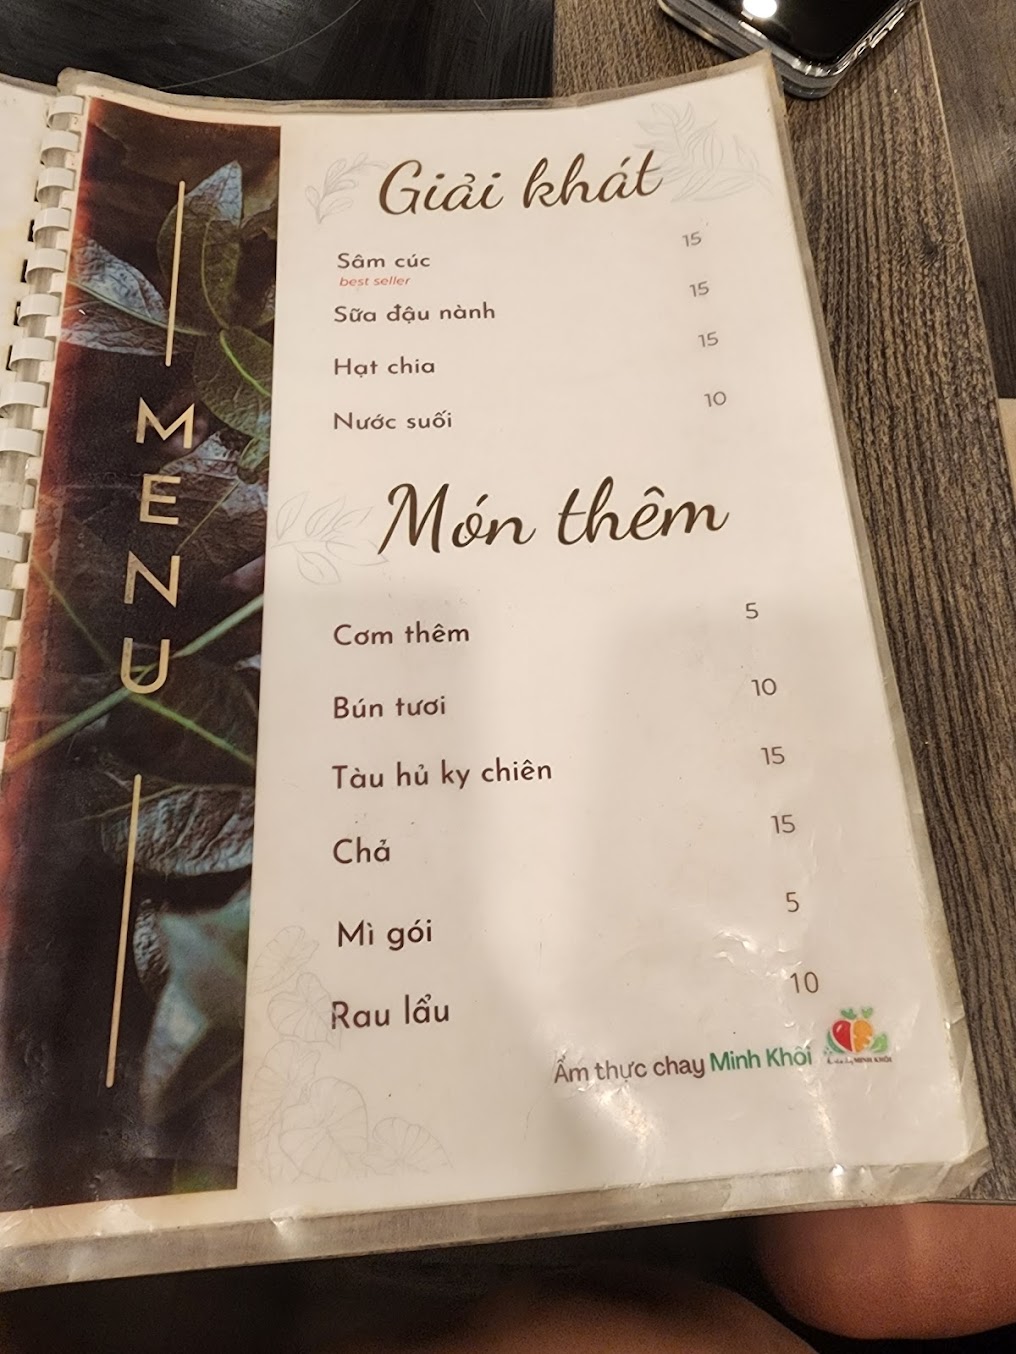 MENU
Giải khát
Sâm cúc 15
best seller
Sữa đậu nành 15
Hạt chia 15
Nước suối 10
Món thêm
Cơm thêm 5
Bún tươi 10
Tàu hủ ky chiên 15
Chả 15
Mì gói 5
Rau lẩu 10
Ẩm thực chay Minh Khôi
MINH KHÔI